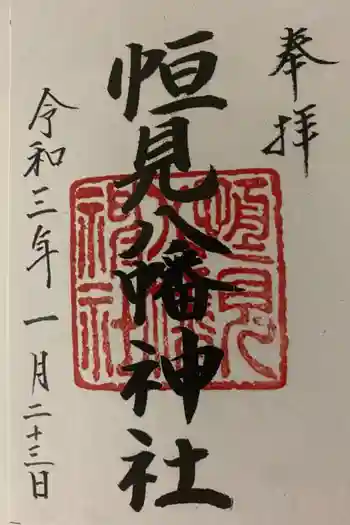 奉拝
恒見八幡神社
恒見八幡神社
令和三年一月二十三日